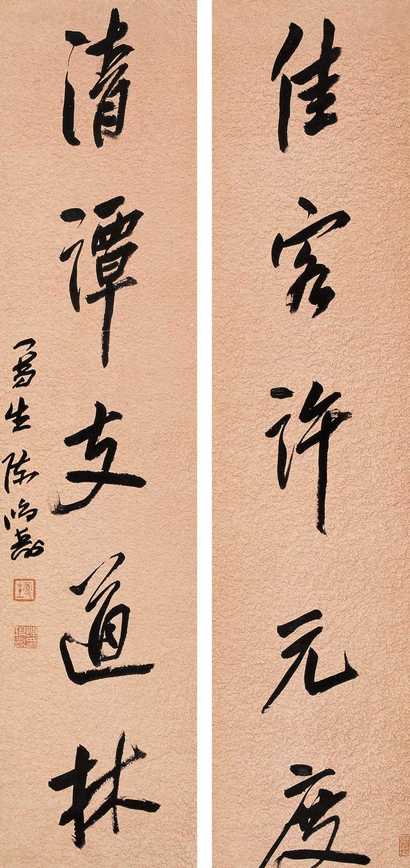 佳客許元度
清譚支道林
曼生陳鴻壽